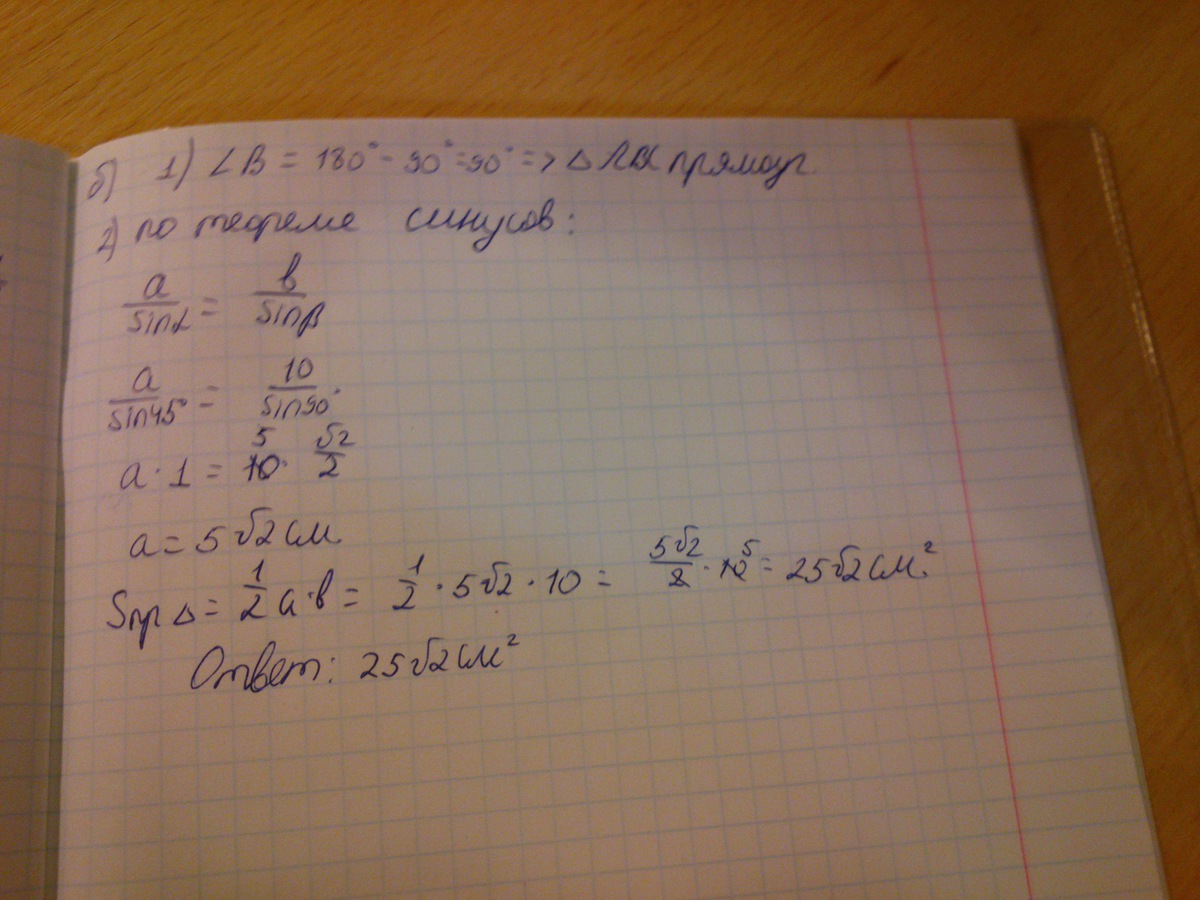 б) 1) ∠B = 180° - 90° = 90° => △ прямоуг.
2) по теореме синусов:
a/sinα = b/sinβ
a/sin45° = 10/sin90°
a · 1 = 10 5 · √2/2
a = 5√2 см
Sпр △ = 1/2 a · b = 1/2 · 5√2 · 10 = 5√2/2 · 10 5 = 25√2 см²
Ответ: 25√2 см²